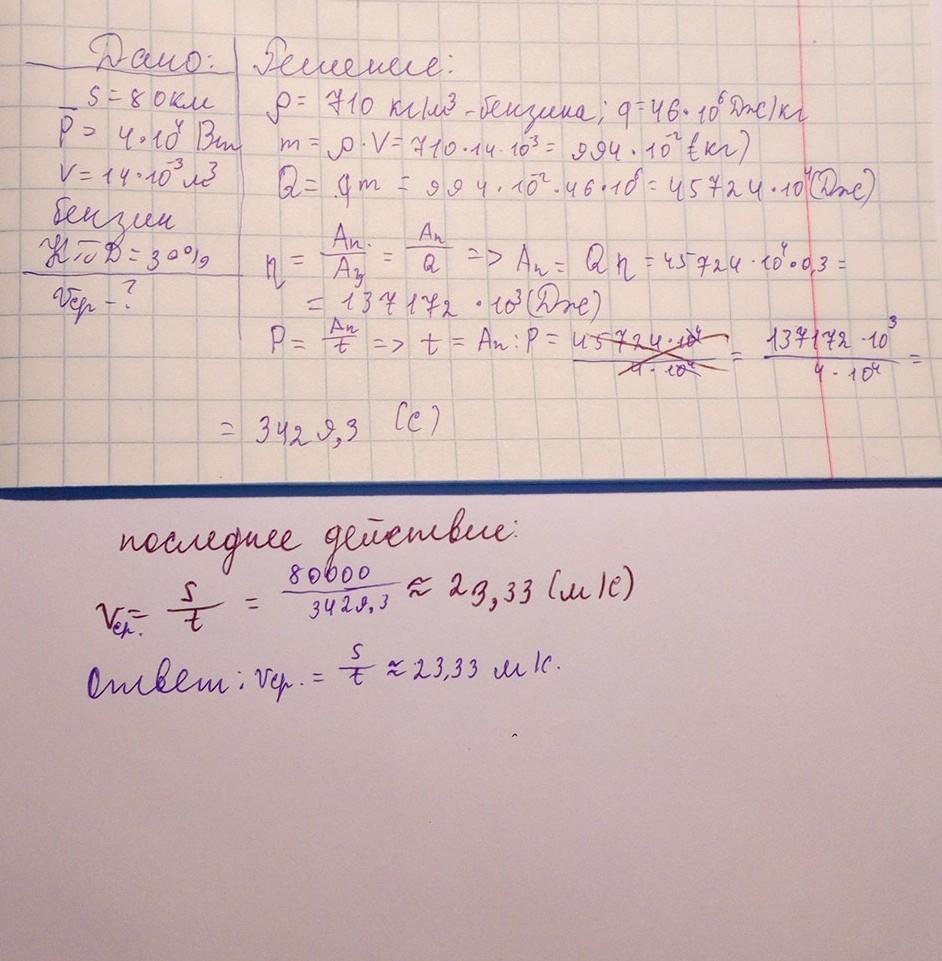 Дано:
S = 80 км
P = 4·10⁴ Вт
V = 14·10⁻³ м³
бензин
КПД = 30%
Vср - ?
Решение:
ρ = 710 кг/м³ - бензина; q = 46·10⁶ Дж/кг
m = ρ·V = 710·14·10⁻³ = 994·10⁻² (кг)
Q = qm = 994·10⁻²·46·10⁶ = 45724·10⁴ (Дж)
η = Aп./Aз = Aп/Q => Aп = Qη = 45724·10⁴·0,3 =
= 137172·10³ (Дж)
P = Aп/t => t = Aп : P = 45724·10⁴/4·10⁴ = 137172·10³/4·10⁴ =
= 3429,3 (с)
последнее действие:
Vср. = S/t = 80000/3429,3 ≈ 23,33 (м/с)
Ответ: Vср. = S/t ≈ 23,33 м/с.